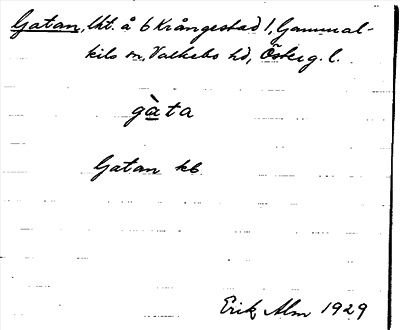 Gatan, lht. å 6 Krångestad 1, Gammal-
kils sn, Valkebo hd, Österg. l.
gàta
Gatan kb
Erik Alm 1929